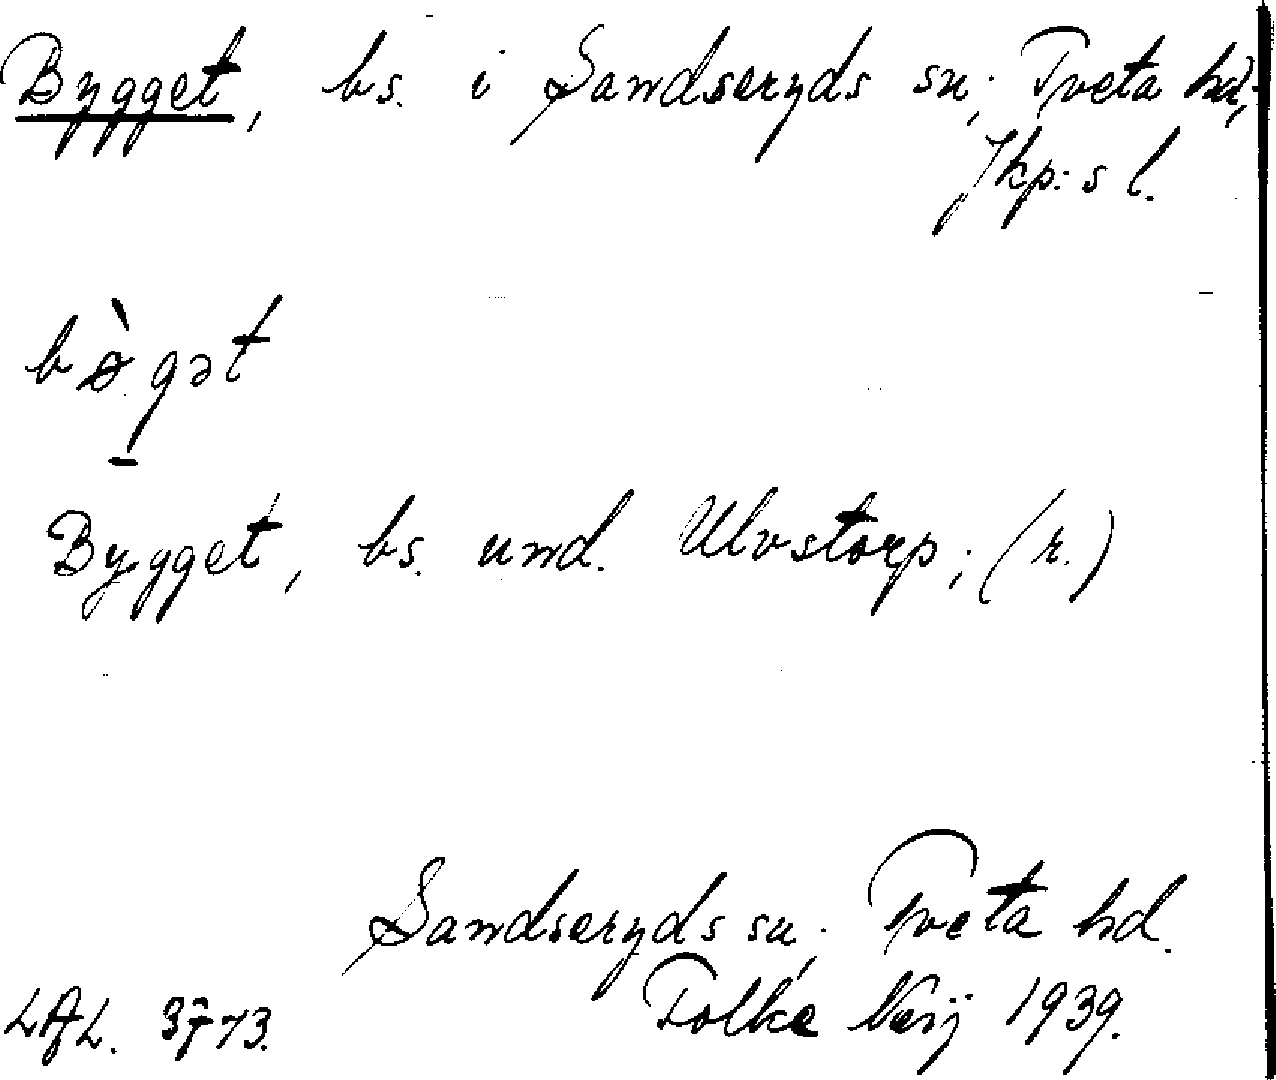 Bygget, bs. i Sandseryds sn; Tveta hd,
Jkp:s l.
bø̀gət
Bygget, bs. und. Ulvstorp; (r.)
Sandseryds sn, Tveta hd.
LAL. 3773. Folke 1939.